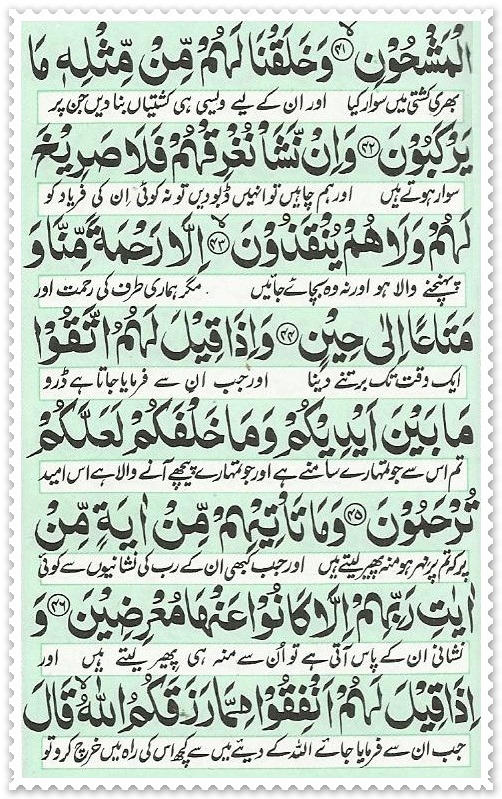 الْمَشْحُوْنِ ۙ﴿۴۱﴾ وَخَلَقْنَا لَهُمْ مِّنْ مِّثْلِهٖ مَا
بھری کشتی میں سوار کیا اور ان کے لیے ویسی ہی کشتیاں بنا دیں جن پر
يَرْكَبُوْنَ ﴿۴۲﴾ وَاِنْ نَّشَاْ نُغْرِقْهُمْ فَلَا صَرِيْخَ
سوار ہوتے ہیں اور ہم چاہیں تو انہیں ڈبو دیں تو نہ کوئی اِن کی فریاد کو
لَهُمْ وَلَا هُمْ يُنْقَذُوْنَ ۙ﴿۴۳﴾ اِلَّا رَحْمَةً مِّنَّا وَ
پہنچنے والا ہو اور نہ وہ بچائے جائیں مگر ہماری طرف کی رحمت اور
مَتَاعًا اِلٰى حِيْنٍ ﴿۴۴﴾ وَاِذَا قِيْلَ لَهُمُ اتَّقُوْا
ایک وقت تک برتنے دینا اور جب ان سے فرمایا جاتا ہے ڈرو
مَا بَيْنَ اَيْدِيْكُمْ وَمَا خَلْفَكُمْ لَعَلَّكُمْ
تم اس سے جو تمہارے سامنے ہے اور جو تمہارے پیچھے آنے والا ہے اس امید
تُرْحَمُوْنَ ﴿۴۵﴾ وَمَا تَاْتِيْهِمْ مِّنْ اٰيَةٍ مِّنْ
پر کہ تم پر مہر ہو منہ پھیر لیتے ہیں اور جب کبھی ان کے رب کی نشانیوں سے کوئی
اٰيٰتِ رَبِّهِمْ اِلَّا كَانُوْا عَنْهَا مُعْرِضِيْنَ ﴿۴۶﴾ وَ
نشانی ان کے پاس آتی ہے تو اُس سے منہ ہی پھیر لیتے ہیں اور
اِذَا قِيْلَ لَهُمْ اَنْفِقُوْا مِمَّا رَزَقَكُمُ اللّٰهُ ۙ قَالَ
جب ان سے فرمایا جائے اللہ کے دیئے میں سے کچھ اس کی راہ میں خرچ کرو تو